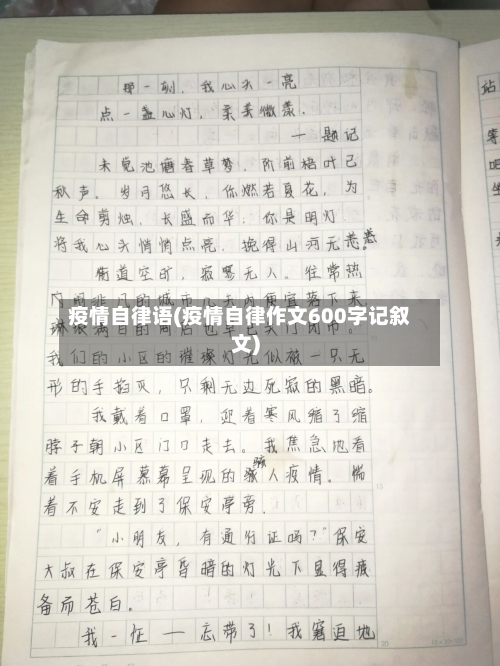 那一刻，我心头一亮
点一盏心灯，亲美微漾.
—题记
未觉池塘春草梦，阶前梧叶已
秋声。岁月悠长，你燃若夏花，为
生命剪烛，长盛而华，你是明灯
将我心头悄悄点亮，挽得山河无恙恙
街道空旷，寂寥无人。往常热
疫情自律语(疫情自律作文600字记叙
文)
我们的小区的璀璨灯光似被一只无
形的手掐灭，只剩无边死寂的黑暗。
我戴着口罩，迎着寒风缩了缩
脖子朝小区门口走去。我焦急地看
着手机屏幕幕呈现的骇人疫情，惴
着不安走到了保安亭旁.
“小朋友，有通行证吗？”保安
大叔在保安亭昏暗的灯光下显得疲
备而苍白。
我一怔——忘带了！我窘迫地
站
等